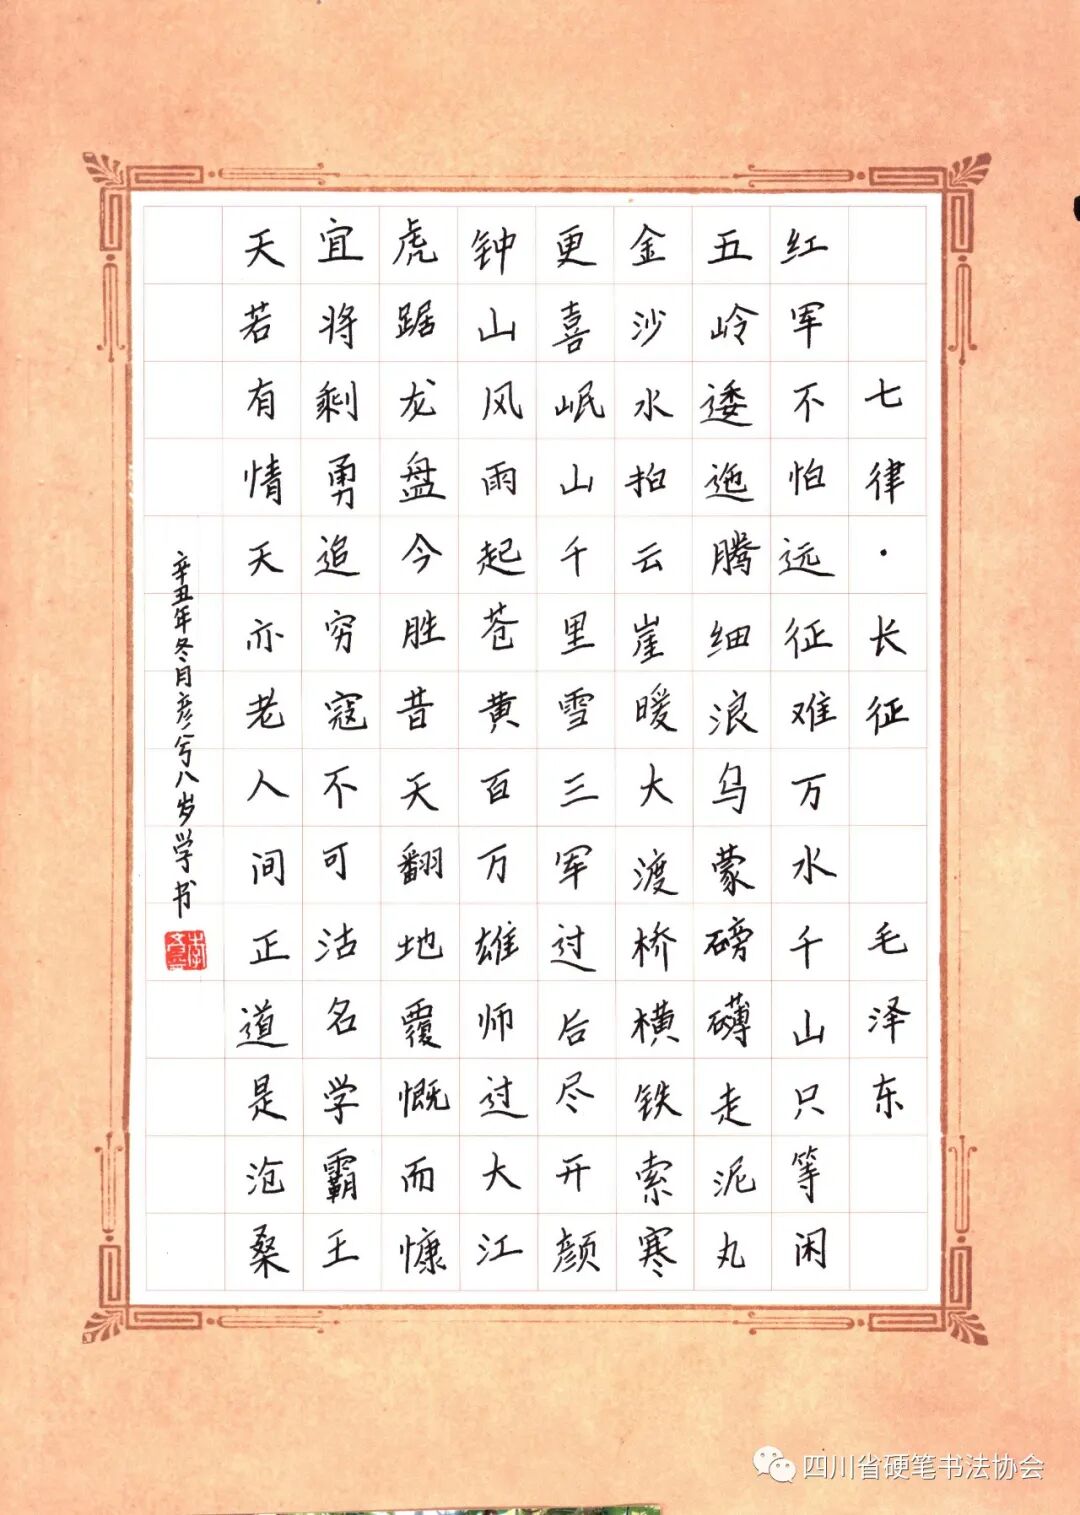 七律·长征 毛泽东
红军不怕远征难万水千山只等闲
五岭逶迤腾细浪乌蒙磅礴走泥丸
金沙水拍云崖暖大渡桥横铁索寒
更喜岷山千里雪三军过后尽开颜
钟山风雨起苍黄百万雄师过大江
虎踞龙盘今胜昔天翻地覆慨而慷
宜将剩勇追穷寇不可沽名学霸王
天若有情天亦老人间正道是沧桑
辛丑年冬月彦兮八岁学书
四川省硬笔书法协会